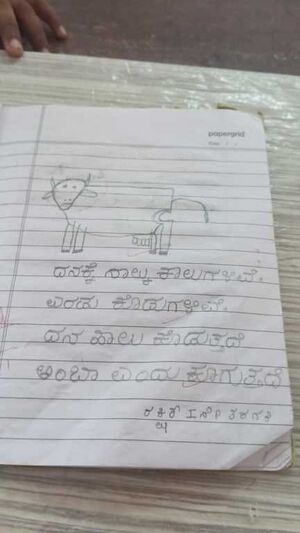 papergrid
ದನಕ್ಕೆ ನಾಲ್ಕು ಕಾಲುಗಳಿವೆ.
ಎರಡು ಕೊಡುಗಳಿವೆ.
ದನ ಹಾಲು ಕೊಡುತ್ತದೆ
ಅಂಬಾ ಎಂದು ಕೂಗುತ್ತದೆ